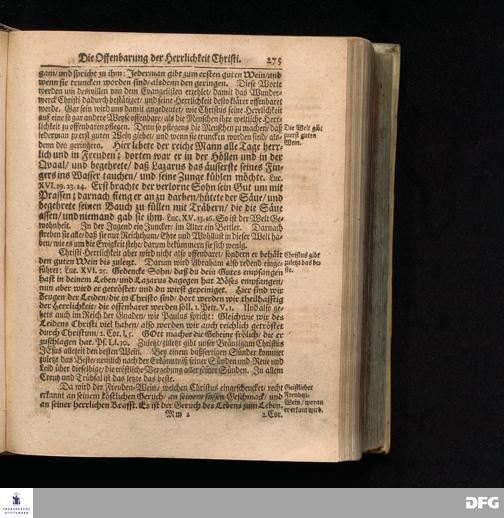 Die Offenbarung der Herrlichkeit Christi. 275
gam/ und spricht zu ihm: Jederman gibt zum ersten guten Wein/ und
wenn sie truncken worden sind/ alsdenn den geringen. Diese Worte
werden um deswillen von dem Evangelisten erzehlet/ damit das Wunder-
werck Christi dadurch bestätiget/ und seine Herrlichkeit desto klärer offenbaret
werde. Gar fein wird uns damit angedeutet/ wie Christus seine Herrlichkeit
auf eine so gar andere Weyse offenbare/ als die Menschen ihre weltliche Herr-
lichkeit zu offenbaren pflegen. Denn so pflegens die Menschen zu machen/ daß
iederman zu erst guten Wein giebet/ und wenn sie truncken worden sind/ als-
denn den geringern. Hier lebete der reiche Mann alle Tage herr-
lich und in Freuden; dorten war er in der Höllen und in der
Qvaal/ und begehrete/ daß Lazarus das äusserste seines Fin-
gers ins Wasser tauchen/ und seine Zunge kühlen möchte. Luc.
XVI. 19. 23. 24. Erst brachte der verlorne Sohn sein Gut um mit
Prassen; darnach fieng er an zu darben/ hütete der Säue/ und
begehrete seinen Bauch zu füllen mit Träbern/ die die Säue
assen/ und niemand gab sie ihm. Luc. XV. 13. 16. So ist der Welt Ge-
wohnheit. In der Jugend ein Juncker/ im Alter ein Bettler. Darnach
streben sie alle/ daß sie nur Reichthum/ Ehre und Wohllust in dieser Welt ha-
ben/ wie es um die Ewigkeit stehe/ darum bekümmern sie sich wenig.
Die Welt gibt
zuerst guten
Wein.
Christi Herrlichkeit aber wird nicht also offenbaret/ sondern er behält
den guten Wein bis zuletzt. Darum wird Abraham also redend einge-
führet: Luc. XVI. 25. Gedencke Sohn/ daß du dein Gutes empfangen
hast in deinem Leben/ und Lazarus dagegen hat Böses empfangen/
nun aber wird er getröstet/ und du wirst gepeiniget. Hier sind wir
Zeugen der Leiden/ die in Christo sind/ dort werden wir theilhafftig
der Herrlichkeit/ die offenbaret werden soll. 1. Petr. V, 1. Und also ge-
hets auch im Reich der Gnaden/ wie Paulus spricht: Gleichwie wir des
Leidens Christi viel haben/ also werden wir auch reichlich getröstet
durch Christum/ 2. Cor. I, 5. GOtt machet die Gebeine frölich/ die er
zuschlagen hat. Ps. LI. 10. Zuletzt giebt unser Bräutigam Christus
JEsus allezeit den besten Wein. Bey einem bußfertigen Sünder kommet
zuletzt das Beste/ nemlich nach der Erkäntniß seiner Sünden und Reue und
Leid über dieselbige/ die tröstliche Vergebung aller seiner Sünden. In allem
Creutz und Trübsal ist das letzte das beste.
Christus gibt
zuletzt das be-
ste.
Da wird der Freuden-Wein/ welchen Christus eingeschencket/ recht
erkannt an seinem köstlichen Geruch/ an seinem süssen Geschmack/ und
an seiner herrlichen Krafft. Es ist der Geruch des Lebens zum Leben.
Geistlicher
Freuden-
Wein/ woran
er erkant wird.
Mm 2 2. Cor.
FRANCKESCHE
STIFTUNGEN
DFG